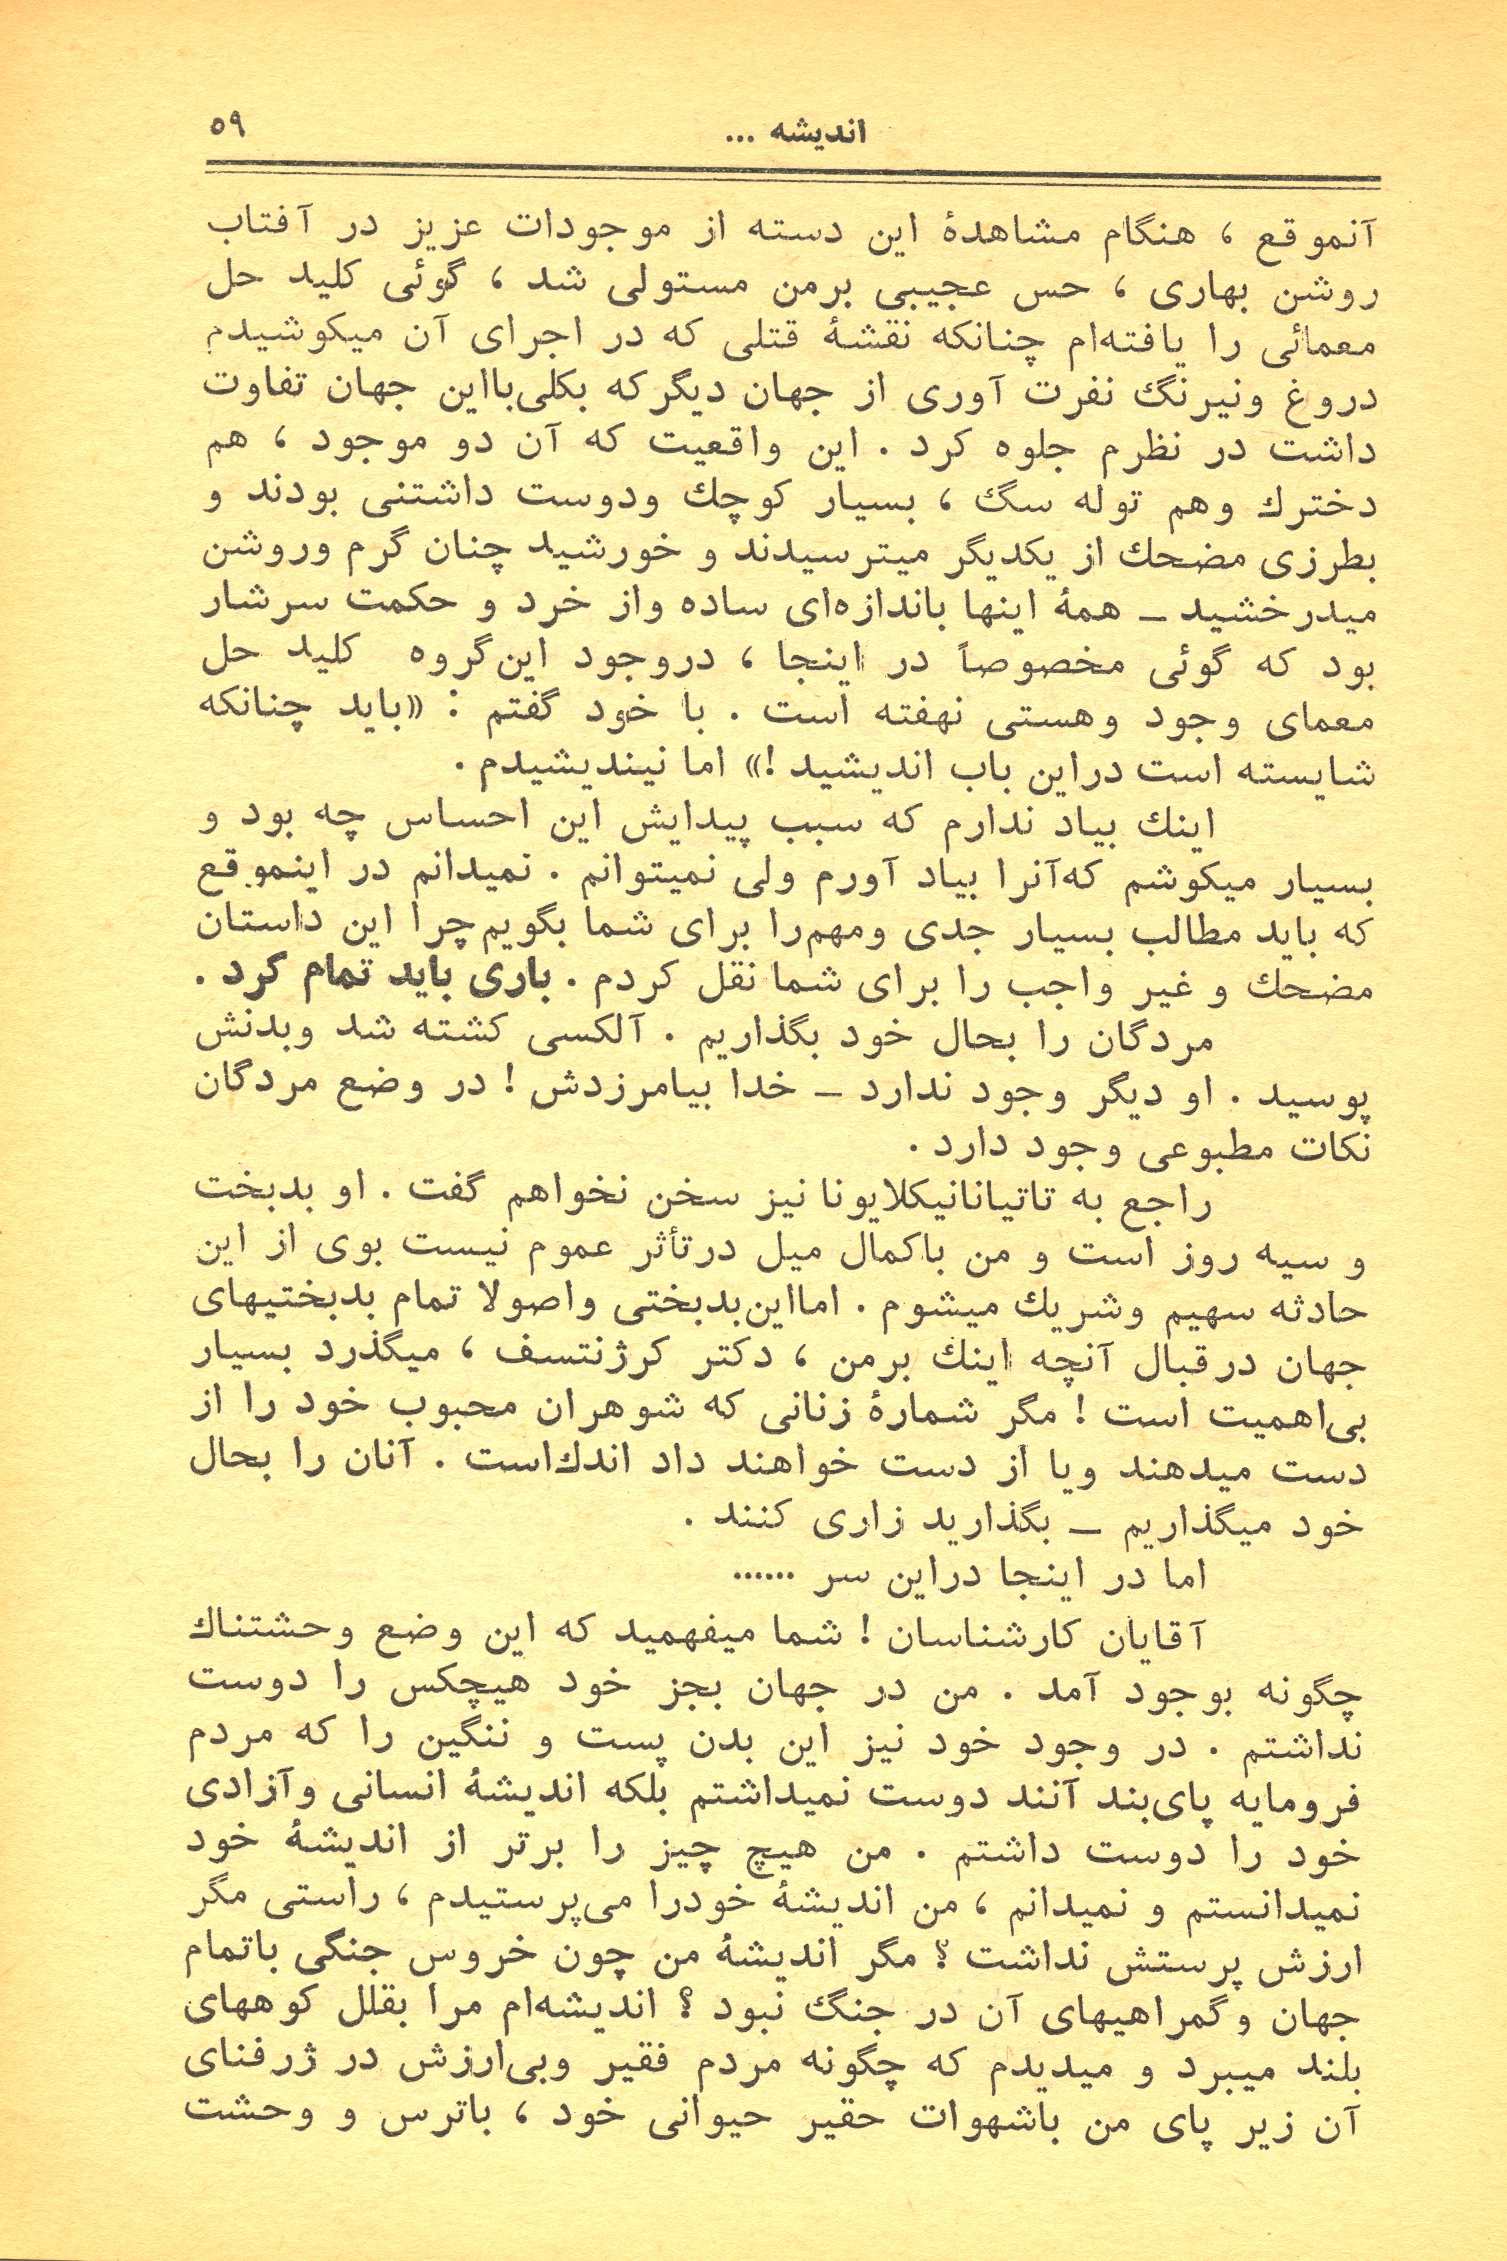 اندیشه ... ۵۹
آنموقع ، هنگام مشاهدهٔ این دسته از موجودات عزیز در آفتاب
روشن بهاری ، حس عجیبی برمن مستولی شد ، گوئی کلید حل
معمائی را یافته‌ام چنانکه نقشهٔ قتلی که در اجرای آن میکوشیدم
دروغ ونیرنگ نفرت آوری از جهان دیگر که بکلی‌بااین جهان تفاوت
داشت در نظرم جلوه کرد . این واقعیت که آن دو موجود ، هم
دخترك وهم توله سگ ، بسیار کوچك ودوست داشتنی بودند و
بطرزی مضحك از یکدیگر میترسیدند و خورشید چنان گرم وروشن
میدرخشید ــ همهٔ اینها باندازه‌ای ساده واز خرد و حکمت سرشار
بود که گوئی مخصوصاً در اینجا ، دروجود این‌گروه کلید حل
معمای وجود وهستی نهفته است . با خود گفتم : «باید چنانکه
شایسته است دراین باب اندیشید !» اما نیندیشیدم .
اینك بیاد ندارم که سبب پیدایش این احساس چه بود و
بسیار میکوشم که‌آنرا بیاد آورم ولی نمیتوانم . نمیدانم در اینموقع
که باید مطالب بسیار جدی ومهم‌را برای شما بگویم چرا این داستان
مضحك و غیر واجب را برای شما نقل کردم . باری باید تمام کرد .
مردگان را بحال خود بگذاریم . آلکسی کشته شد وبدنش
پوسید . او دیگر وجود ندارد ــ خدا بیامرزدش ! در وضع مردگان
نکات مطبوعی وجود دارد .
راجع به تاتیانانیکلایونا نیز سخن نخواهم گفت . او بدبخت
و سیه روز است و من باکمال میل درتأثر عموم نیست بوی از این
حادثه سهیم وشریك میشوم . امااین‌بدبختی واصولا تمام بدبختیهای
جهان درقبال آنچه اینك برمن ، دکتر کرژنتسف ، میگذرد بسیار
بی‌اهمیت است ! مگر شمارهٔ زنانی که شوهران محبوب خود را از
دست میدهند ویا از دست خواهند داد اندك‌است . آنان را بحال
خود میگذاریم ــ بگذارید زاری کنند .
اما در اینجا دراین سر ......
آقایان کارشناسان ! شما میفهمید که این وضع وحشتناك
چگونه بوجود آمد . من در جهان بجز خود هیچکس را دوست
نداشتم . در وجود خود نیز این بدن پست و ننگین را که مردم
فرومایه پای‌بند آنند دوست نمیداشتم بلکه اندیشهٔ انسانی وآزادی
خود را دوست داشتم . من هیچ چیز را برتر از اندیشهٔ خود
نمیدانستم و نمیدانم ، من اندیشهٔ خودرا می‌پرستیدم ، راستی مگر
ارزش پرستش نداشت ؟ مگر اندیشهٔ من چون خروس جنگی باتمام
جهان وگمراهیهای آن در جنگ نبود ؟ اندیشه‌ام مرا بقلل کوههای
بلند میبرد و میدیدم که چگونه مردم فقیر وبی‌ارزش در ژرفنای
آن زیر پای من باشهوات حقیر حیوانی خود ، باترس و وحشت